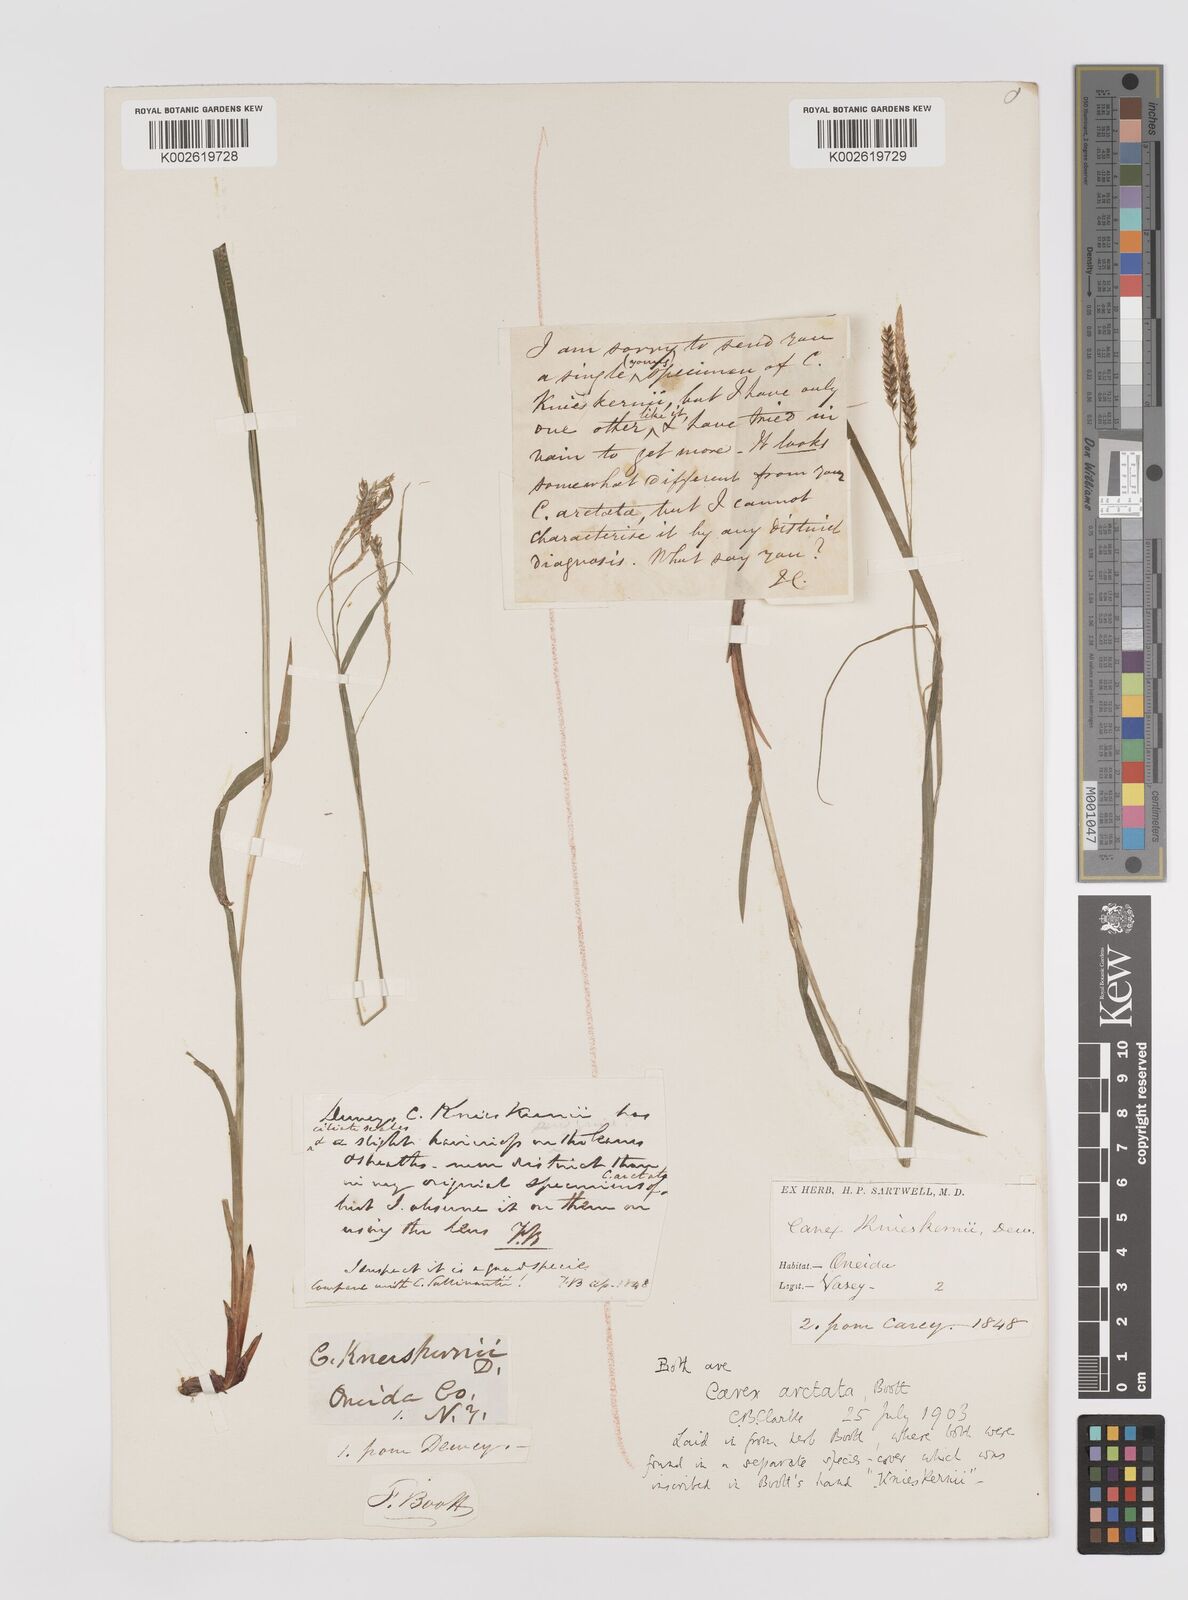 ROYAL BOTANIC GARDENS KEW
K002619728
ROYAL BOTANIC GARDENS KEW
K002619729
I am sorry to send you
a single (young) specimen of C.
Knieskernii, but I have only
one other like it, & have tried in
vain to get more - It looks
somewhat different from your
C. arctata, but I cannot
characterise it by any distinct
diagnosis. What say you?
J.C.
Dewey's C. Knieskernii has
ciliate scales
& a slight hairiness on the leaves
& sheaths - more distinct than
in my original specimens of C. arctata
but I observe it on them on
using the lens F.B
I suspect it is a good species
Compare with C. Sullivantii! F.B ap. 1848
C. Knieskernii
D.
Oneida Co.
1. N.Y.
1. from Dewey. -
F. Boott
EX HERB. H. P. SARTWELL, M. D.
Carex Knieskernii, Dew.
Habitat.— Oneida
Legit.— Vasey - 2
2. from Carey. - 1848
Both are
Carex arctata, Boott
C.B.Clarke 25 July 1903
Laid in from herb Boott, where both were
found in a separate species-cover which was
inscribed in Boott's hand "Knieskernii" -
inches
centimetres
Density
Don Williams
M001047
Royal Botanic Gardens
Kew
copyright reserved
0 1 2 3 4 5 6 7 8 9 10
cm